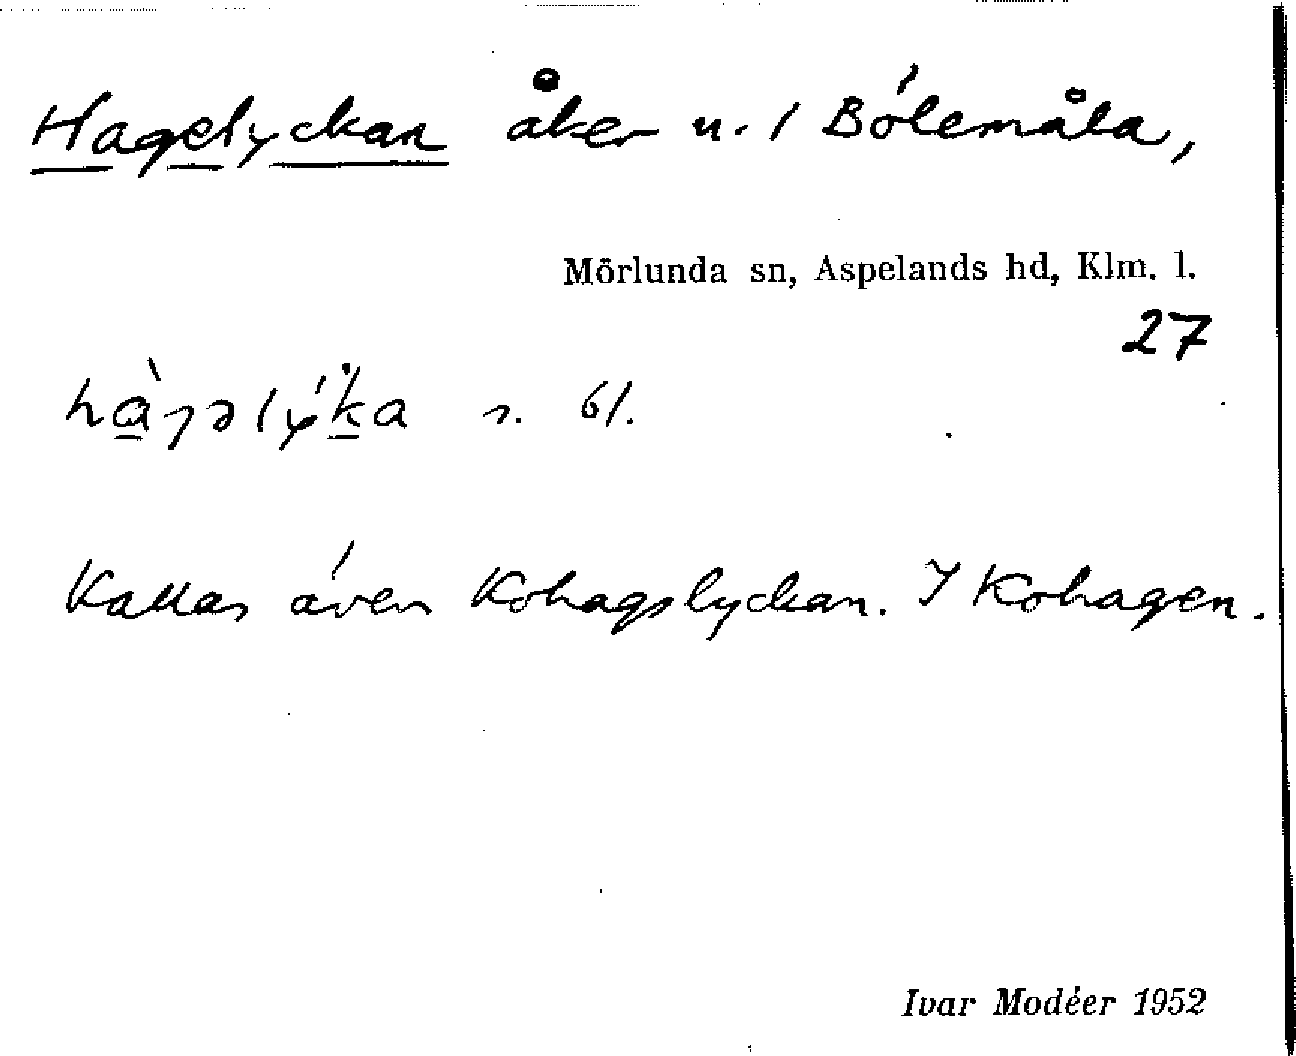 Hagelyckan åker n. 1 Bölemåla,
Mörlunda sn, Aspelands hd, Klm. l.
27
s. 61.
Kallas även Kohagslyckan. I Kohagen.
Ivar Modéer 1952